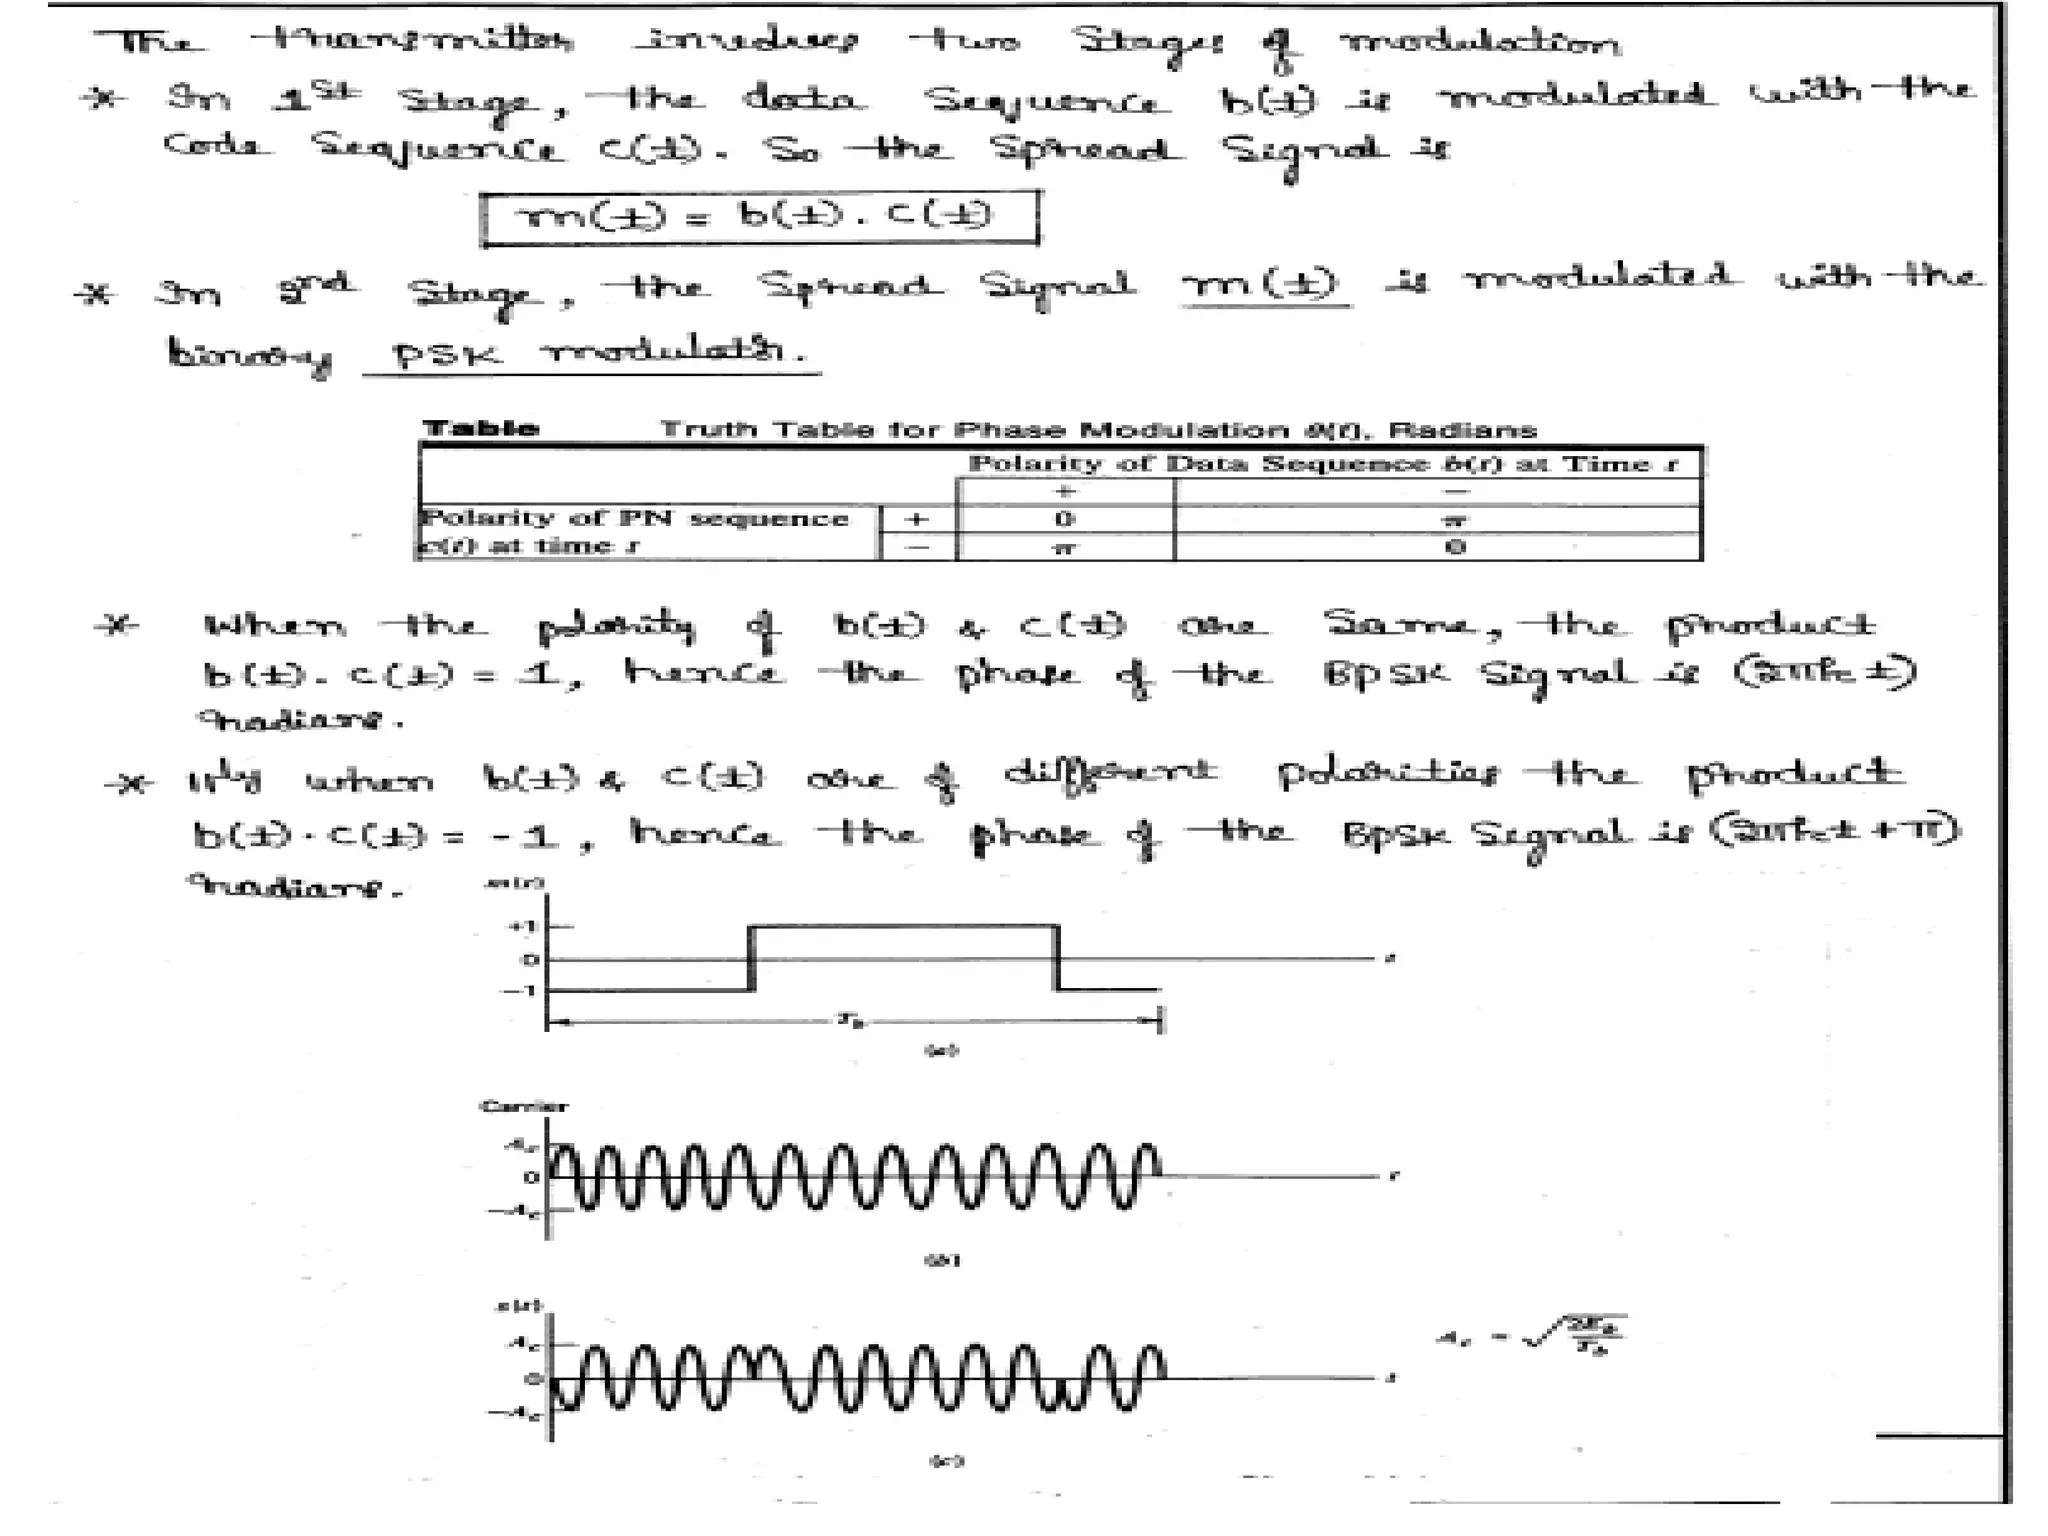 The transmitter involves two Stages of modulation
* In 1st Stage, the data Sequence b(t) is modulated with the
Code Sequence c(t). So the Spread Signal is
m(t) = b(t) . c(t)
* In 2nd Stage, the Spread Signal m(t) is modulated with the
binary PSK modulator.
Table Truth Table for Phase Modulation θ(t), Radians
Polarity of Data Sequence b(t) at Time t
+ −
Polarity of PN sequence + 0 π
c(t) at time t − π 0
* When the polarity of b(t) & c(t) are Same, the product
b(t). c(t) = 1, hence the phase of the BPSK Signal is (2πfc t)
radians.
* 11ly when b(t) & c(t) are of different polarities the product
b(t) . c(t) = -1, hence the phase of the BPSK Signal is (2πfct + π)
radians.
m(t)
+1
0 t
−1
Tb
(a)
Carrier
Ac
0 t
−Ac
(b)
s(t)
Ac
0 t
−Ac
Ac = √2Eb/Tb
(c)